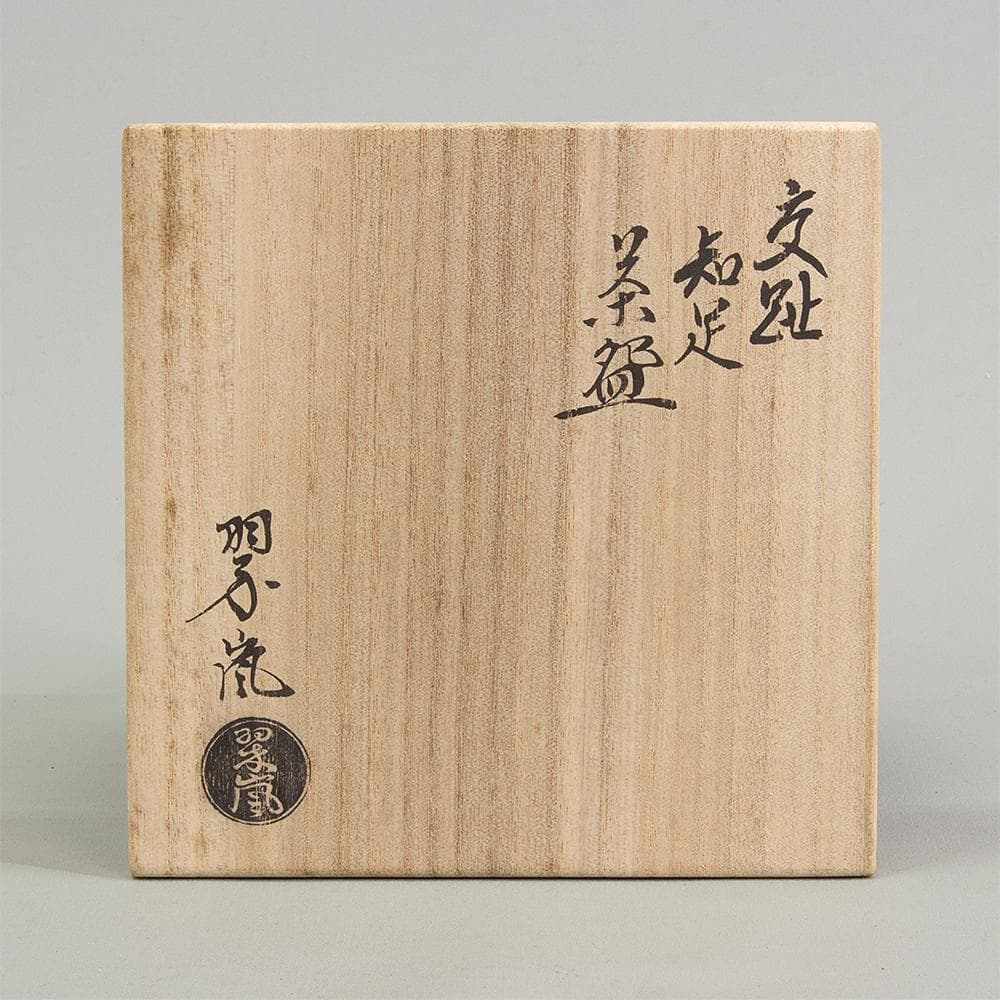 交趾
知足
茶盌
翠嵐
翠嵐